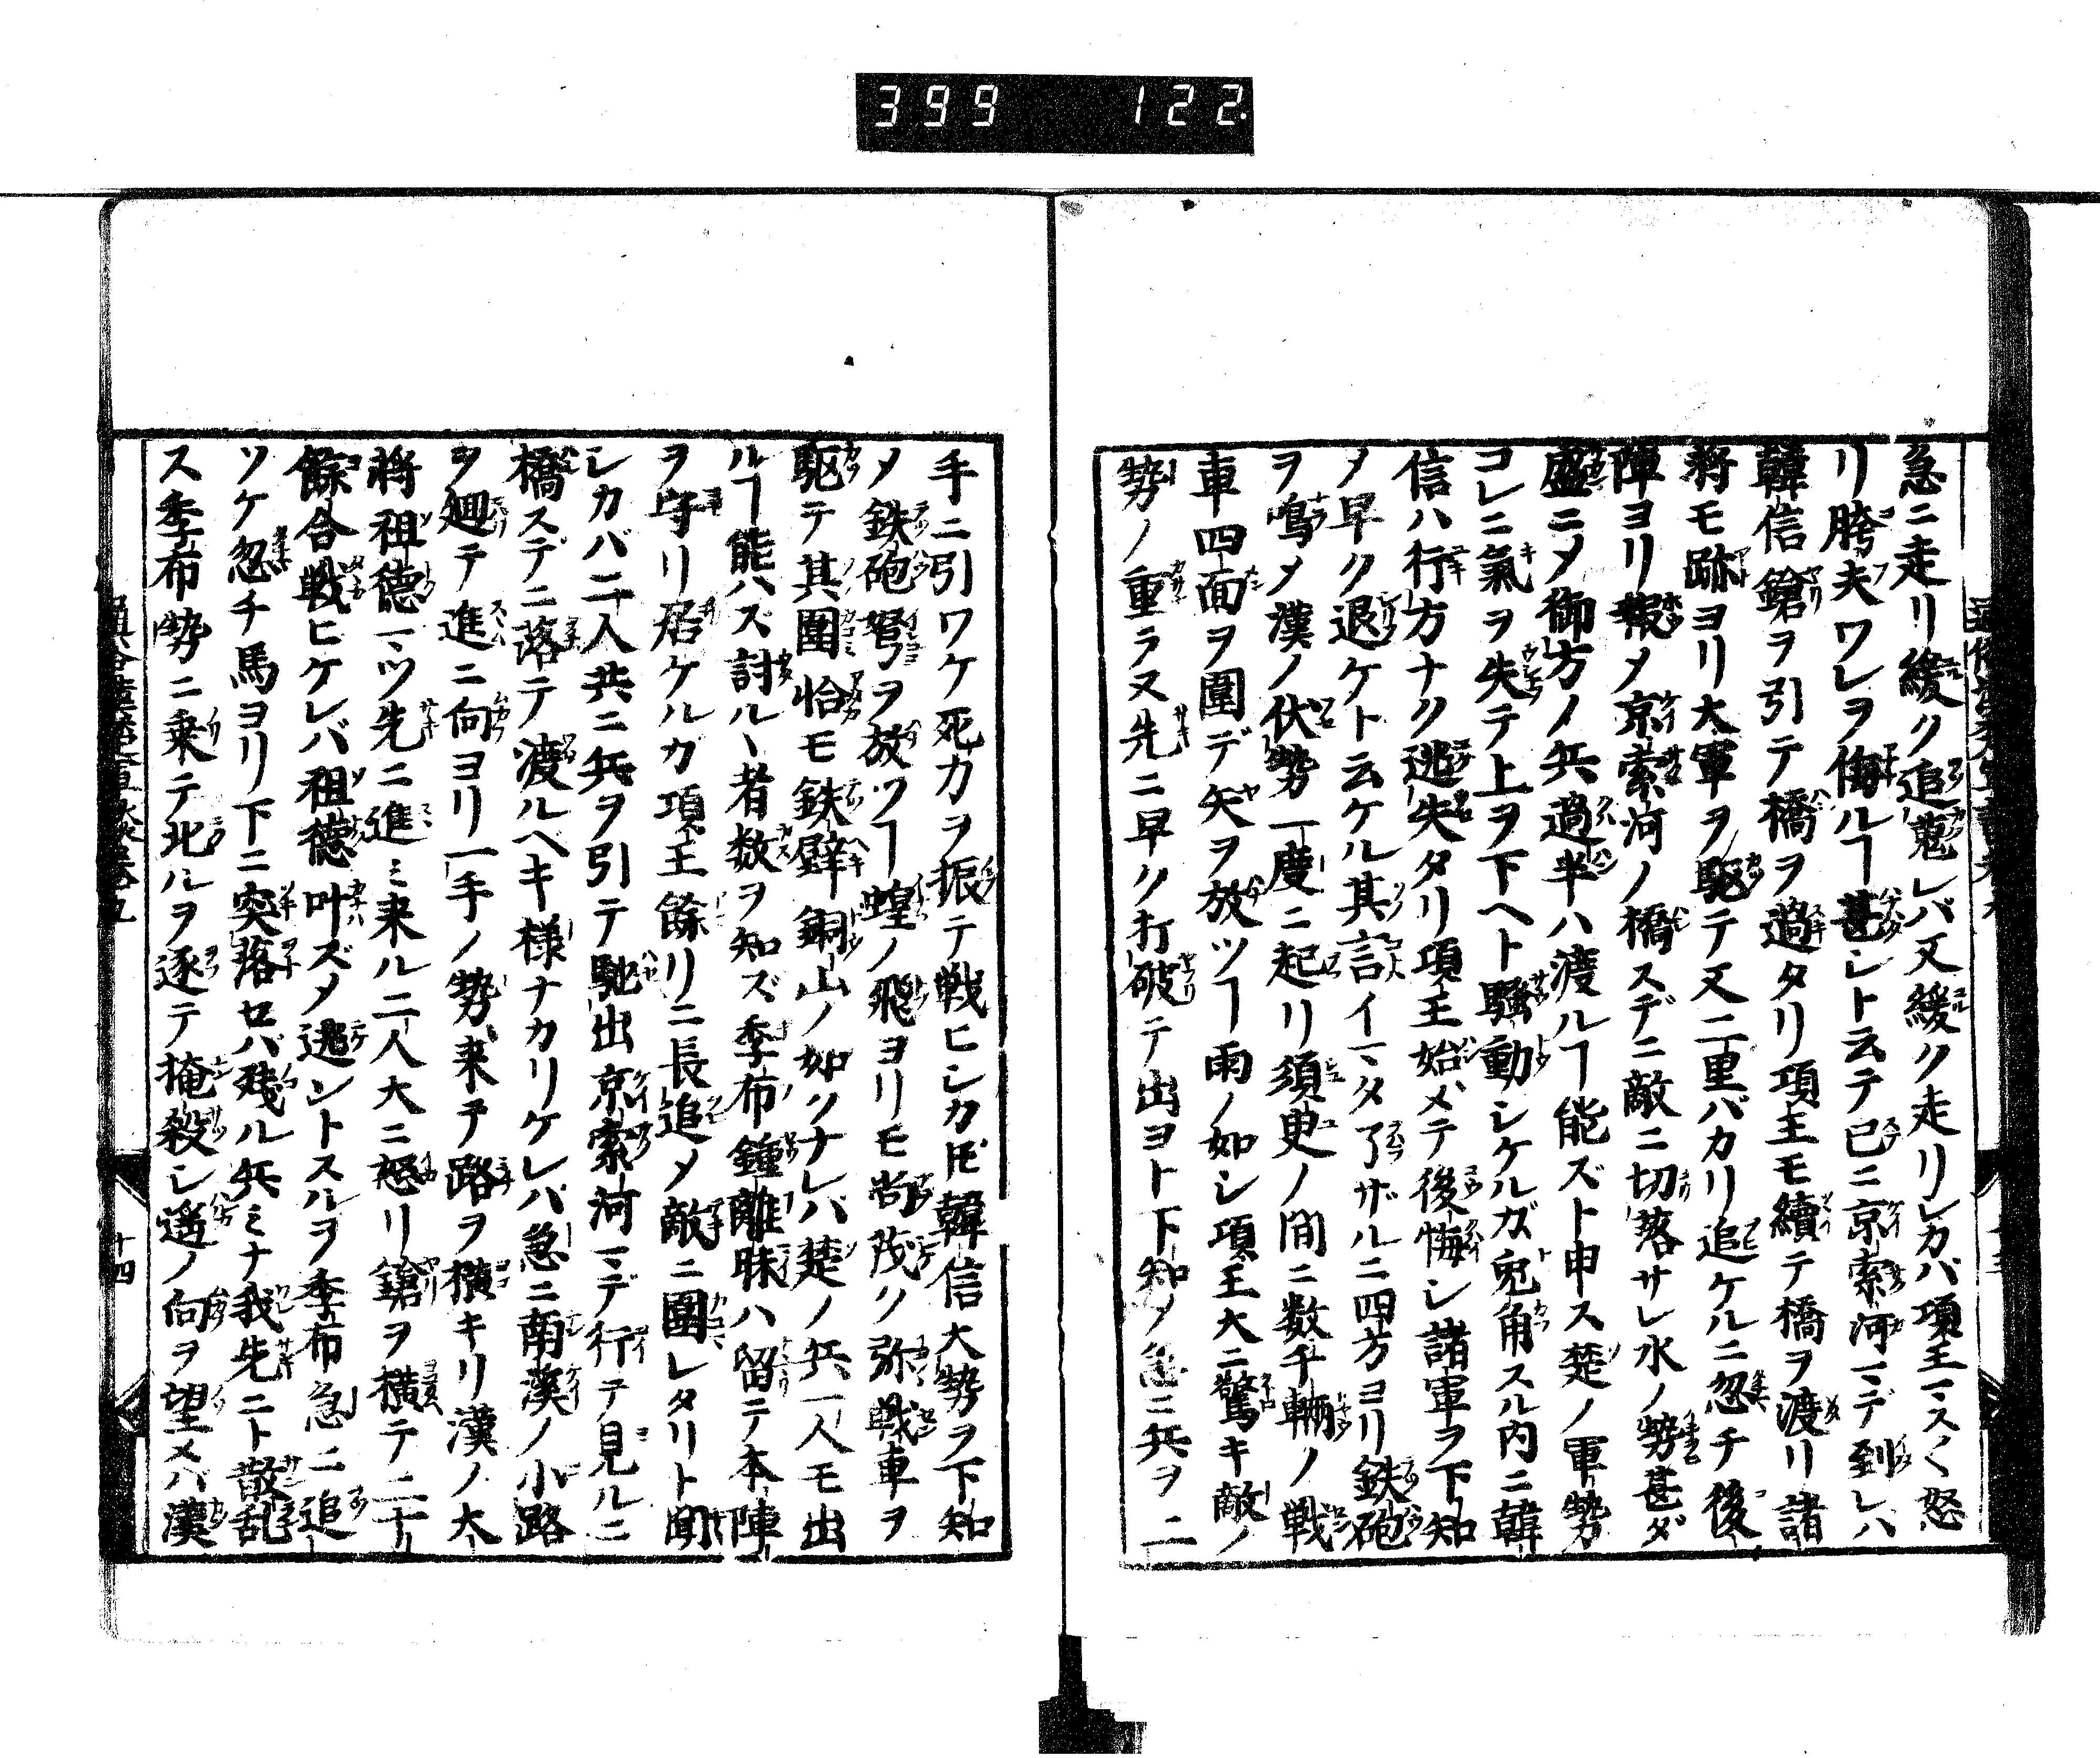 399 122
急ニ走リ緩ク追蒐レバ又緩ク走リレカバ項王マスく怒
リ胯夫ワレヲ侮ルヿ甚シト云テ已ニ京索河マデ到レハ
韓信鎗ヲ引テ橋ヲ過タリ項王モ續テ橋ヲ渡リ諸
将モ跡ヨリ大軍ヲ駆テ又二里バカリ追ケルニ忽チ後
陣ヨリ報メ京索河ノ橋スデニ敵ニ切落サレ水ノ勢甚ダ
盛ニメ御方ノ兵過半ハ渡ルヿ能ズト申ス楚ノ軍勢
コレニ氣ヲ失テ上ヲ下ヘト騒動シケルガ兎角スル内ニ韓
信ハ行方ナク逃失タリ項王始メテ後悔シ諸軍ヲ下知
メ早ク退ケト云ケル其言イマタ了ザルニ四方ヨリ鉄砲
ヲ鳴メ漢ノ伏勢一度ニ起リ須臾ノ間ニ数千輛ノ戦
車四面ヲ圍デ矢ヲ放ツヿ雨ノ如シ項王大ニ驚キ敵ノ
勢ノ重ラヌ先ニ早ク打破テ出ヨト下知メ急ニ兵ヲ二
手ニ引ワケ死力ヲ振テ戦ヒシカ𪜈韓信大勢ヲ下知
メ鉄砲弩ヲ放ツヿ蝗ノ飛ヨリモ尚茂ク弥戦車ヲ
駆テ其圍恰モ鉄壁銅山ノ如クナレバ楚ノ兵一人モ出
ルヿ能ハズ討ルヽ者数ヲ知ズ季布鍾離昧ハ留テ本陣
ヲ守リ居ケルカ項王餘リニ長追メ敵ニ圍レタリト聞
シカバ二人共ニ兵ヲ引テ馳出京索河マデ行テ見ルニ
橋スデニ落テ渡ルヘキ様ナカリケレバ急ニ南溪ノ小路
ヲ廻テ進ニ向ヨリ一手ノ勢来テ路ヲ横キリ漢ノ大
将祖徳マツ先ニ進ミ来ル二人大ニ怒リ鎗ヲ横テ二十
餘合戦ヒケレバ祖徳叶ズメ逃ントスルヲ季布急ニ追
ツケ忽チ馬ヨリ下ニ突落セバ残ル兵ミナ我先ニト散乱
ス季布勢ニ乗テ北ルヲ逐テ掩殺シ遥ノ向ヲ望メバ漢
十四